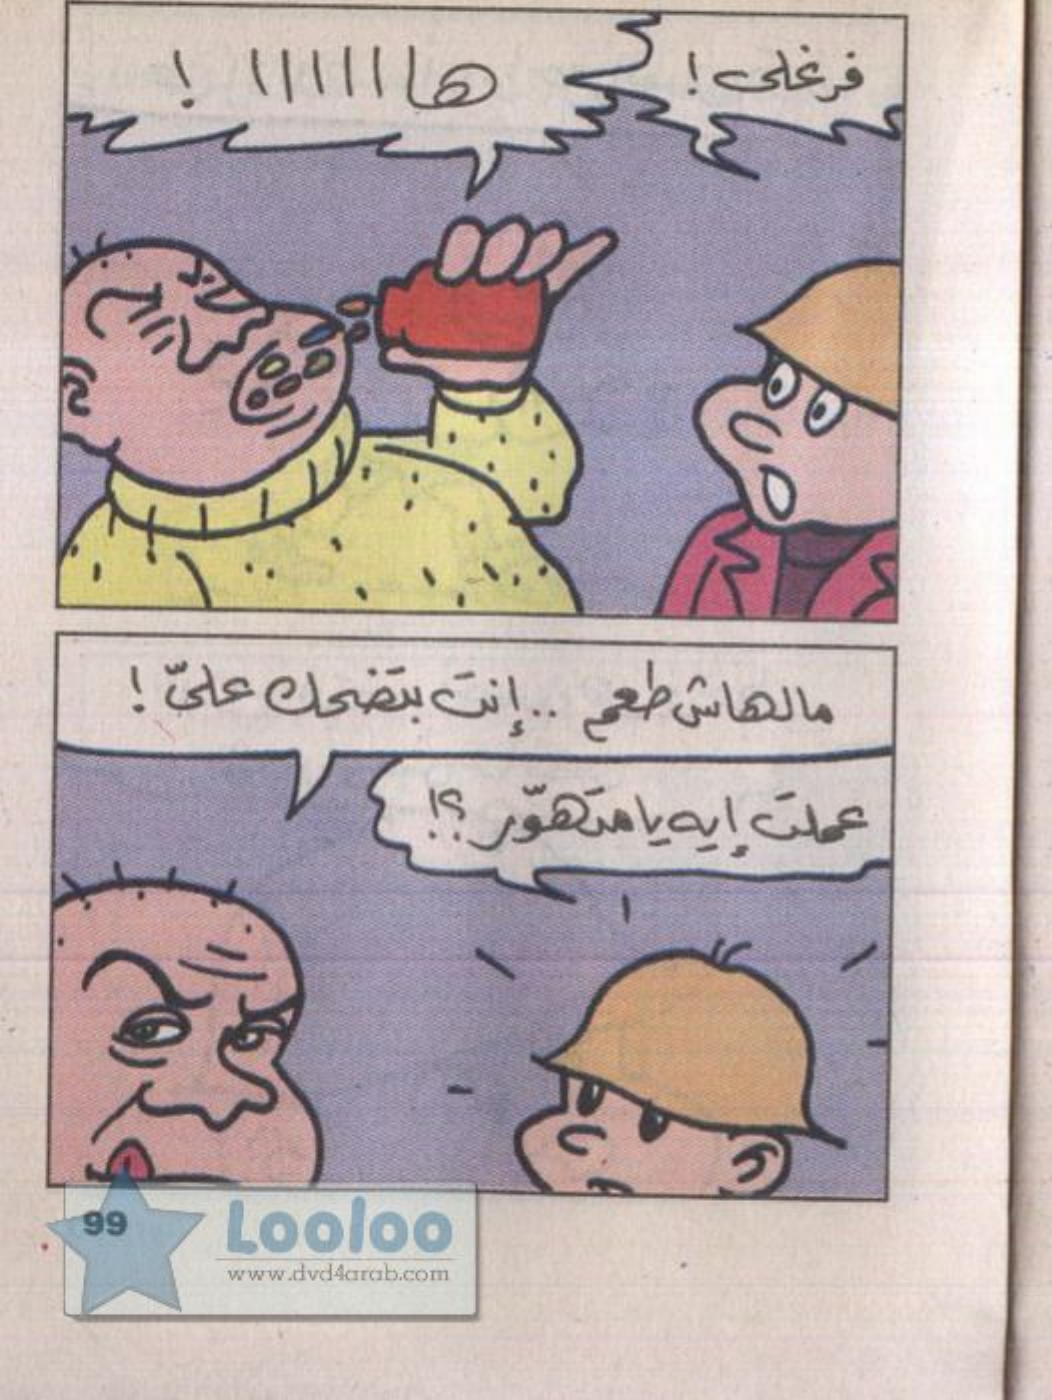 فرغلى !
هاااااااا !
مالهاش طعم .. إنتَ بتَضحك علىّ !
عملتَ إيه يا متَهوّر ؟!
99
Looloo
www.dvd4arab.com